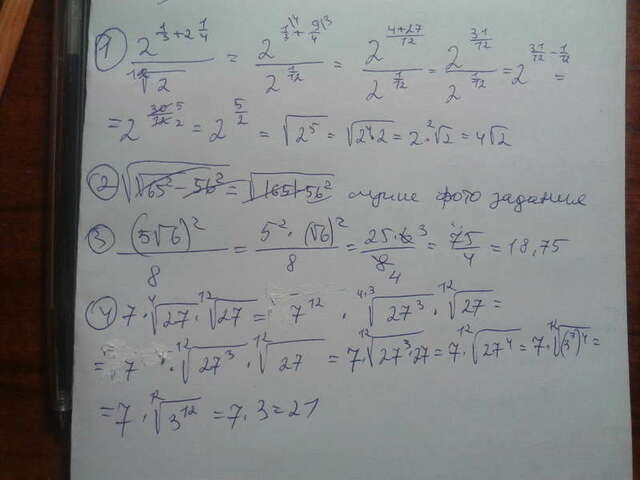 1) 2^(1/3 + 2 1/4) / ¹²√2 = 2^(1/3 \4 + 9/4 \3) / 2^(1/12) = 2^((4+27)/12) / 2^(1/12) = 2^(31/12) / 2^(1/12) = 2^(31/12 - 1/12) =
= 2^(30/12 5/2) = 2^(5/2) = √2⁵ = √2⁴·2 = 2²√2 = 4√2
2) √√65² - 56² = √165+56² лучше фото задания
3) (5√6)² / 8 = 5² · (√6)² / 8 = 25·6 3 / 8 4 = 75/4 = 18,75
4) 7·⁴√27·¹²√27 = 7¹² · ⁴·³√27³ · ¹²√27 =
= 7 · ¹²√27³ · ¹²√27 = 7·¹²√27³·27 = 7·¹²√27⁴ = 7·¹²√(3³)⁴ =
= 7·¹²√3¹² = 7·3 = 21